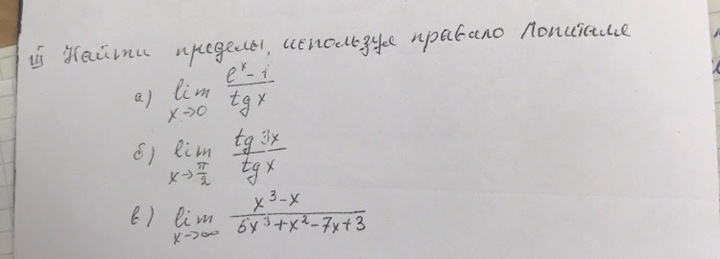 III Найти пределы, используя правило Лопиталя
а) lim x→0 (e^x − 1)/(tg x)
б) lim x→π/2 (tg 3x)/(tg x)
в) lim x→∞ (x³ − x)/(5x³ + x² − 7x + 3)